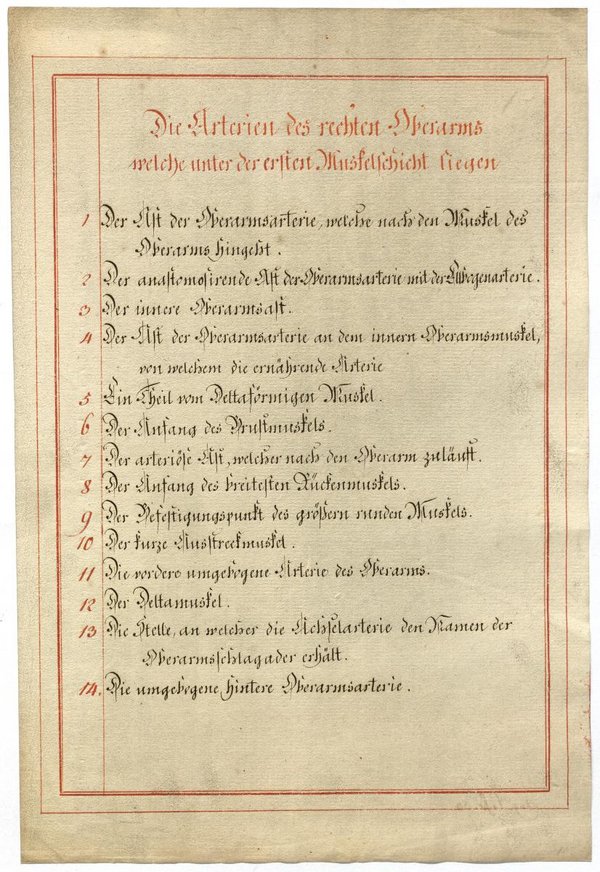 Die Arterien des rechten Oberarms
welche unter der ersten Muskelschicht liegen
1 Der Ast der Oberarmsarterie, welche nach den Muskel des
Oberarms hingeht.
2 Der anastomosirende Ast der Oberarmsarterie mit der Elbogenarterie.
3 Der innere Oberarmsast.
4 Der Ast der Oberarmsarterie an dem innern Oberarmsmuskel,
von welchem die ernährende Arterie
5 Ein Theil vom Deltaförmigen Muskel.
6 Der Anfang des Brustmuskels.
7 Der arteriöse Ast, welcher nach den Oberarm zuläuft.
8 Der Anfang des breitesten Rückenmuskels.
9 Der Befestigungspunkt des größern runden Muskels.
10 Der kurze Ausstreckmuskel.
11 Die vordere umgebogene Arterie des Oberarms.
12 Der Deltamuskel.
13 Die Stelle, an welcher die Achselarterie den Namen der
Oberarmsschlagader erhält.
14. Die umgebogene hintere Oberarmsarterie.